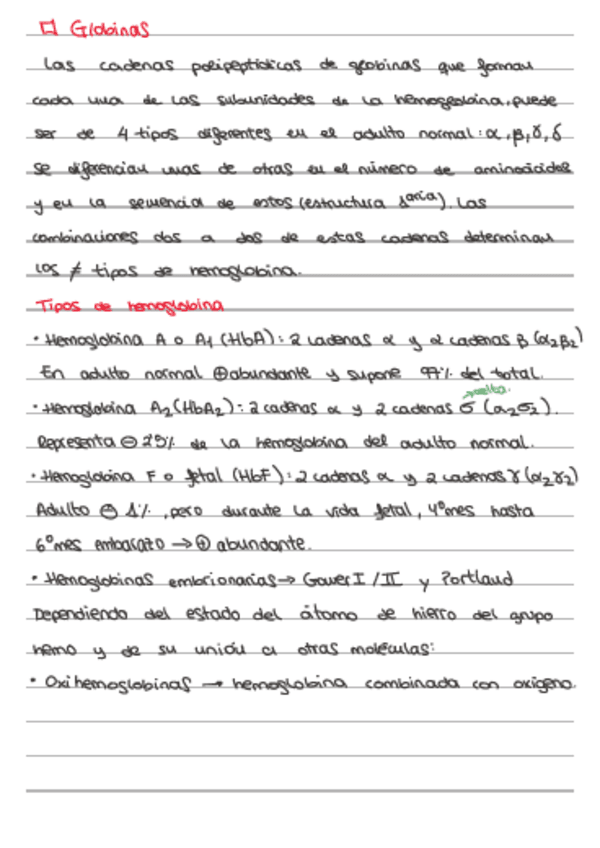 Globinas
Las cadenas polipeptídicas de globinas que forman
cada una de las subunidades de la hemoglobina, puede
ser de 4 tipos diferentes en el adulto normal: α, β, γ, δ
se diferencian unas de otras en el número de aminoácidos
y en la secuencia de estos (estructura 1aria). Las
combinaciones dos a dos de estas cadenas determinan
los ≠ tipos de hemoglobina.
Tipos de hemoglobina
• Hemoglobina A o A1 (HbA): 2 cadenas α y 2 cadenas β (α2β2)
En adulto normal ⊕ abundante y supone 97% del total.
→ delta.
• Hemoglobina A2 (HbA2): 2 cadenas α y 2 cadenas σ (α2σ2).
Representa ⊖ 2'5% de la hemoglobina del adulto normal.
• Hemoglobina F o fetal (HbF): 2 cadenas α y 2 cadenas γ (α2γ2)
Adulto ⊖ 1%, pero durante la vida fetal, 4º mes hasta
6º mes embarazo → ⊕ abundante.
• Hemoglobinas embrionarias → Gower I / II y Portland
Dependiendo del estado del átomo de hierro del grupo
hemo y de su unión a otras moléculas:
• Oxihemoglobinas → hemoglobina combinada con oxígeno.